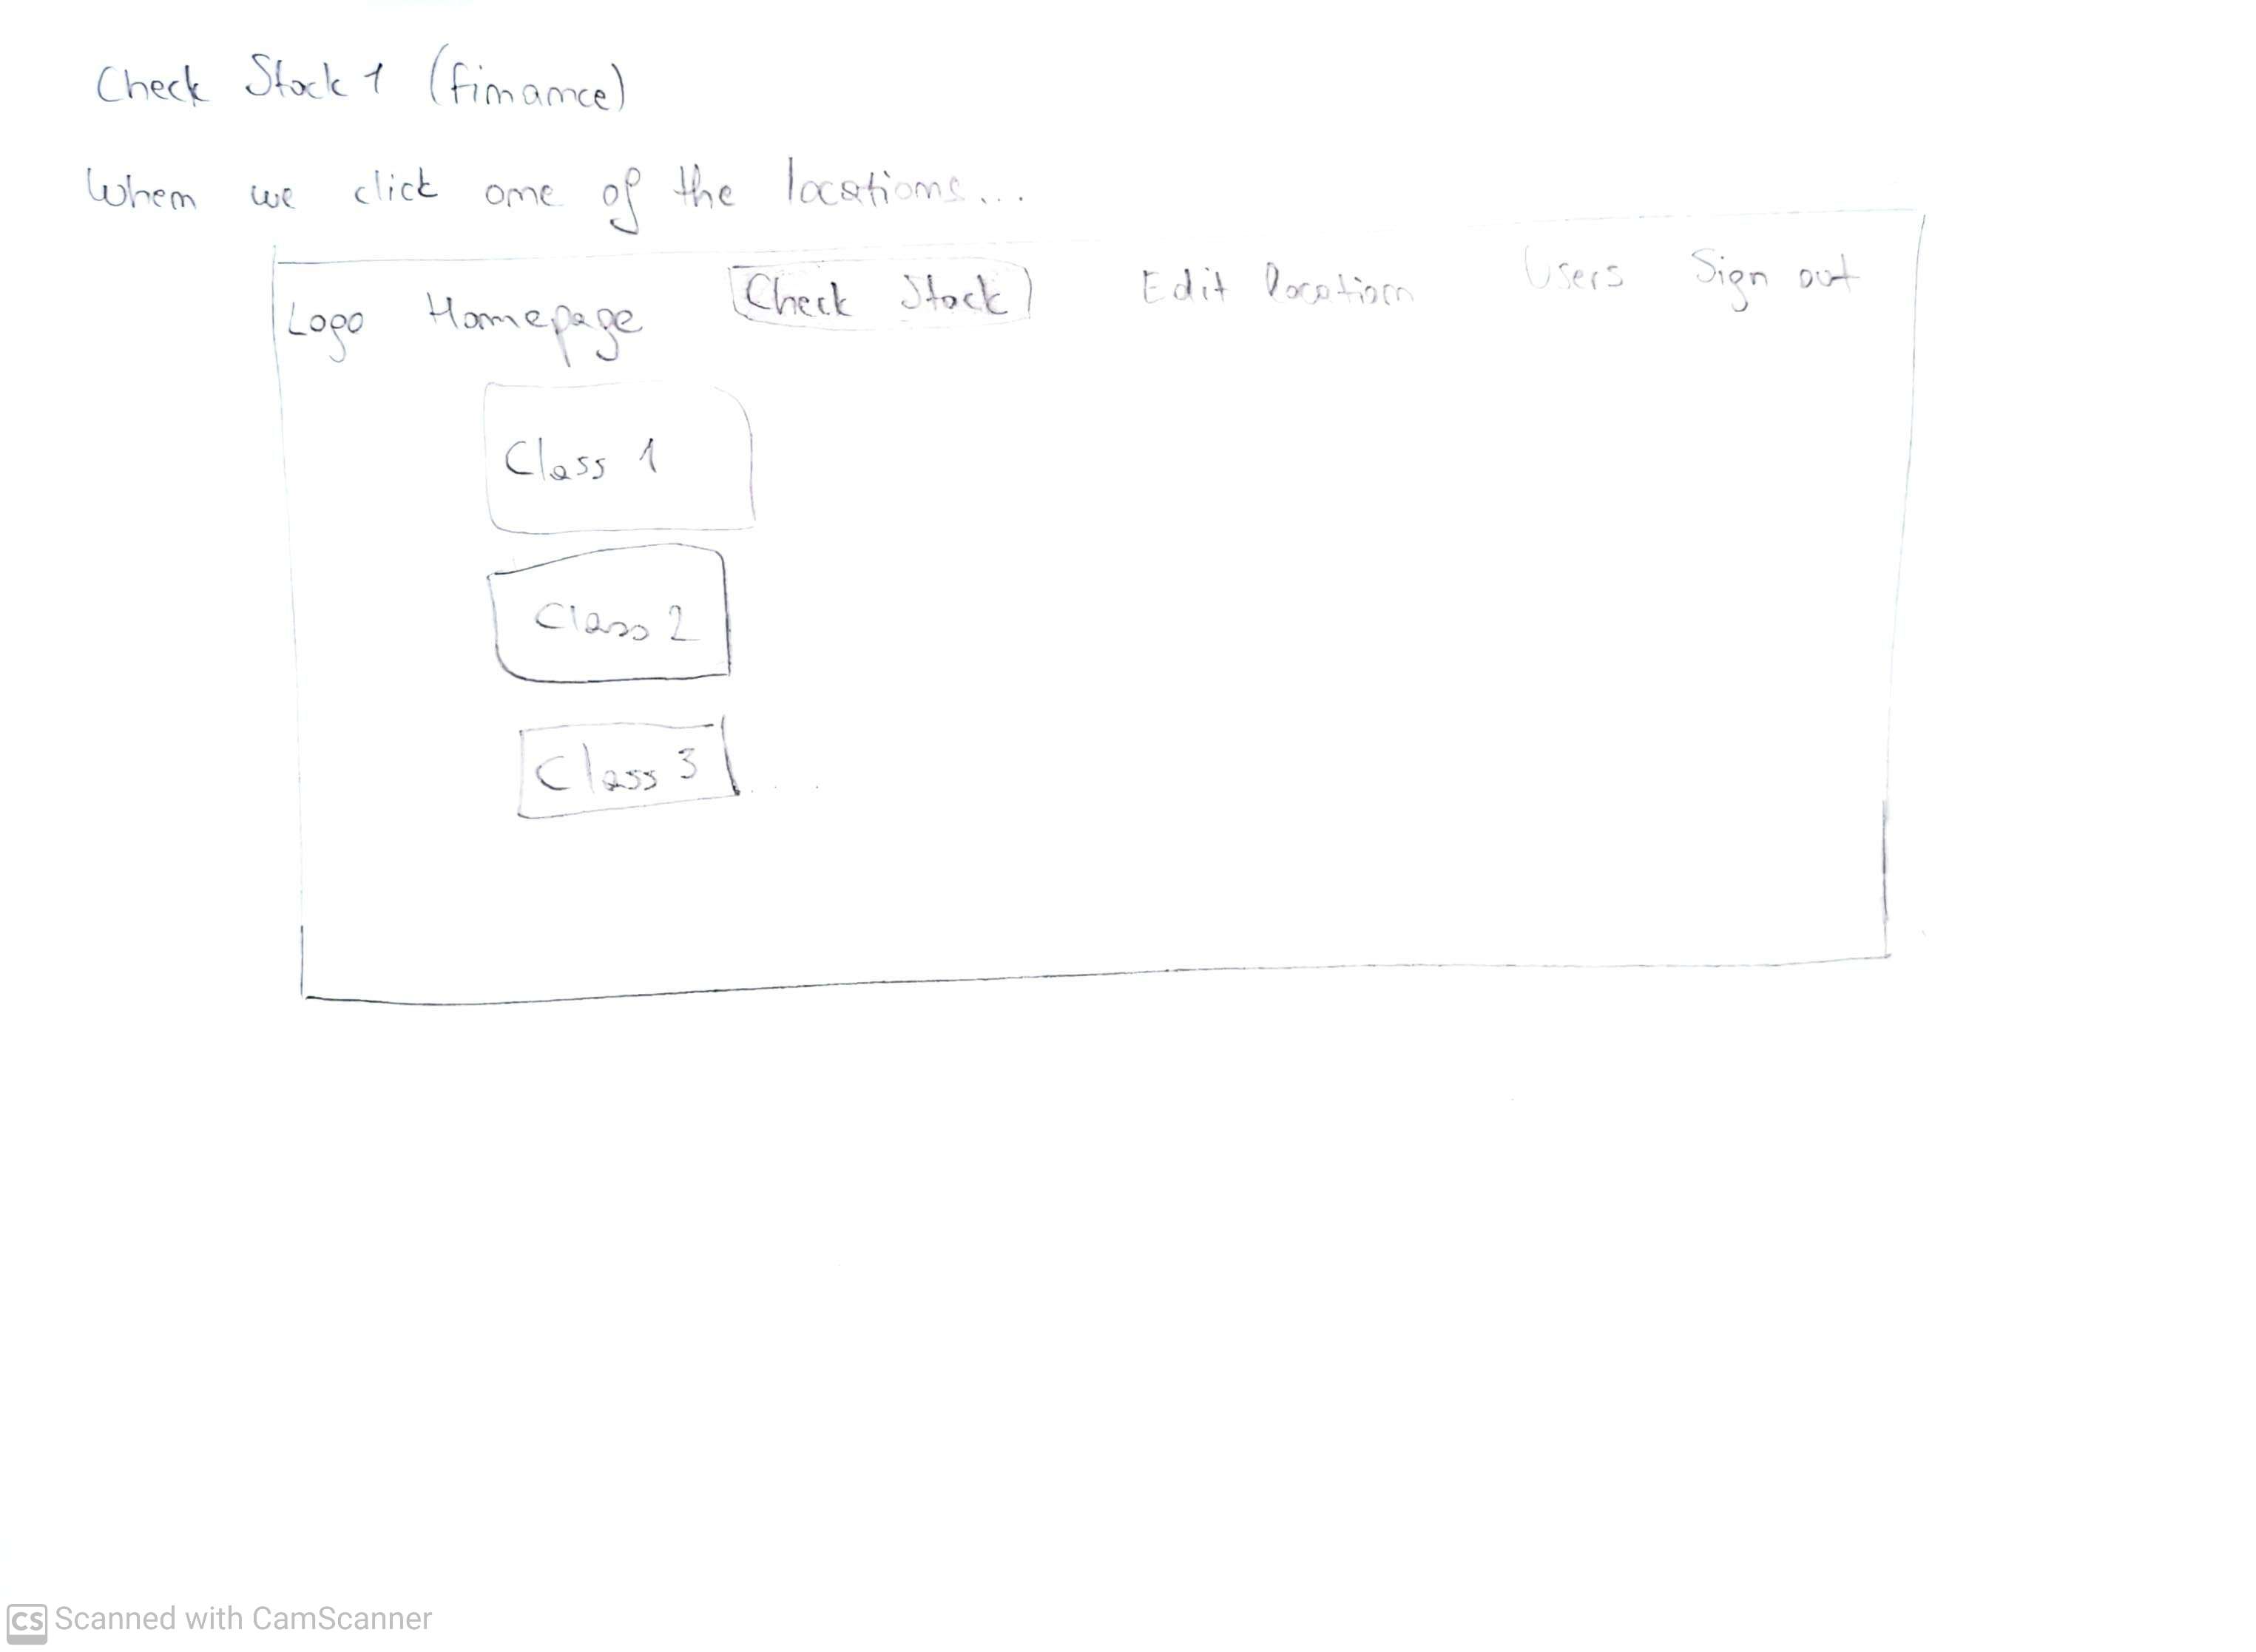 Check Stock 1 (finance)
When we click one of the locations...
Logo Homepage Check Stock Edit location Users Sign out
Class 1
Class 2
Class 3 ....
CS Scanned with CamScanner